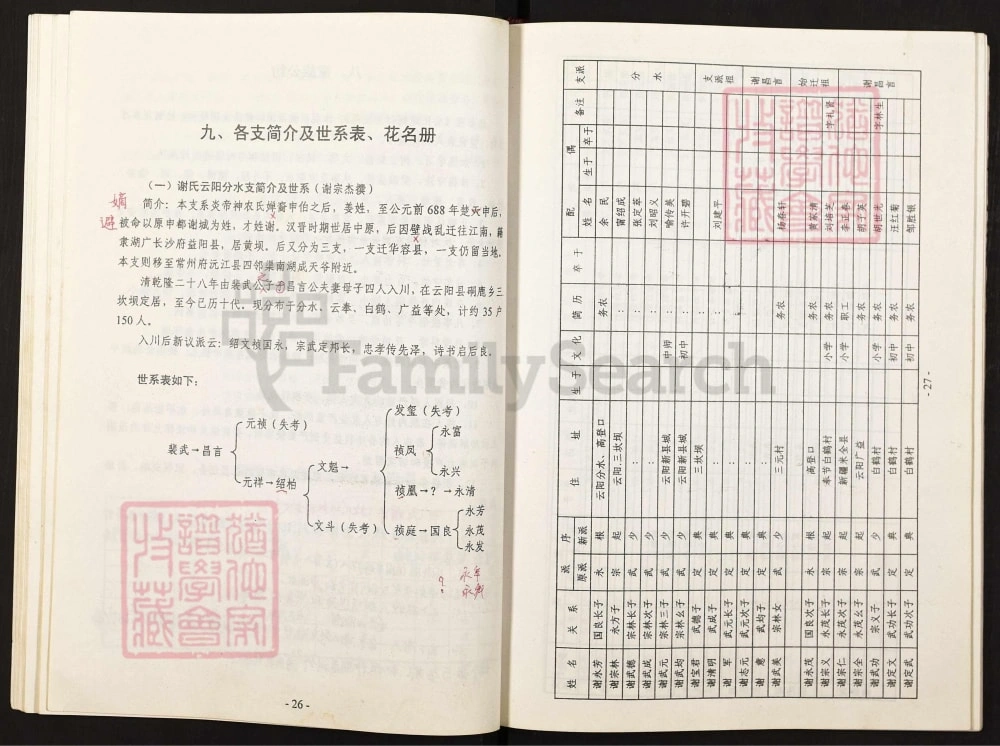 九、各支简介及世系表、花名册
（一）谢氏云阳分水支简介及世系（谢宗杰撰）
简介：本支系炎帝神农氏婵裔申伯之后，姜姓，至公元前688年楚灭申后，
被命以原申都谢城为姓，才姓谢。汉晋时期世居中原，后因壁战乱迁往江南，
隶湖广长沙府益阳县，居黄坝。后又分为三支，一支迁华容县，一支仍留当地，
本支则移至常州府沅江县四邻巢南湖成天爷附近。
清乾隆二十八年由裴武公子昌言公夫妻母子四人入川，在云阳县硐鹿乡三
坎坝定居，至今已历十代。现分布于分水、云奉、白鹤、广益等处，计约35户
150人。
入川后新议派云：绍文桢国永，宗武定邦长，忠孝传先泽，诗书启后良。
世系表如下：
裴武→昌言
元祯（失考）
元祥→绍柏
文魁→
文斗（失考）
发玺（失考）
桢凤
永富
永兴
桢凰→？→永清
桢庭→国良
永芳
永茂
永发
嫡
避
- 26 -
姓 名 关 系 派 序 原派 新派 住 址 生于 文化 简历 卒于 配 偶 姓 名 生于 卒于 备注 支派
谢永芳 国良长子 永 根 云阳分水、高登口 务农 余 民
谢宗林 永方子 宗 起 云阳.三坎坝 : 蒲绍成
谢武德 宗林长子 武 少 : : 张定翠
谢武成 宗林次子 武 少 : : 刘昭义
谢武元 宗林三子 武 少 云阳新县城 中师 : 喻传美
谢武均 宗林幺子 武 少 云阳新县城 初中 : 许开碧
谢宝君 武德子 定 典 三坎坝 :
谢清明 武成子 定 典 : : 刘建平
谢 军 武元长子 定 典 : :
谢志元 武元次子 定 典 : :
谢 意 武均子 定 典 :
谢武美 宗林女 武 少 三元村 务农 杨春轩
谢永茂 国良次子 永 根 高登口 务农 黄家清
谢宗义 永茂长子 宗 起 奉节白鹤村 小学 务农 刘培芝 字礼贤
谢宗仁 永茂次子 宗 起 新疆米全县 小学 职工 李正春
谢宗全 永茂幺子 宗 起 云阳广益 务农 胡子英
谢武功 宗义子 武 少 白鹤村 小学 务农 胡世元 字林生
谢定文 武功长子 定 典 白鹤村 初中 务农 汪红菊
谢定武 武功次子 定 典 白鹤村 初中 务农 邹胜银
分 水
支派祖
谢昌言
始迁祖
谢昌言
- 27 -
FamilySearch